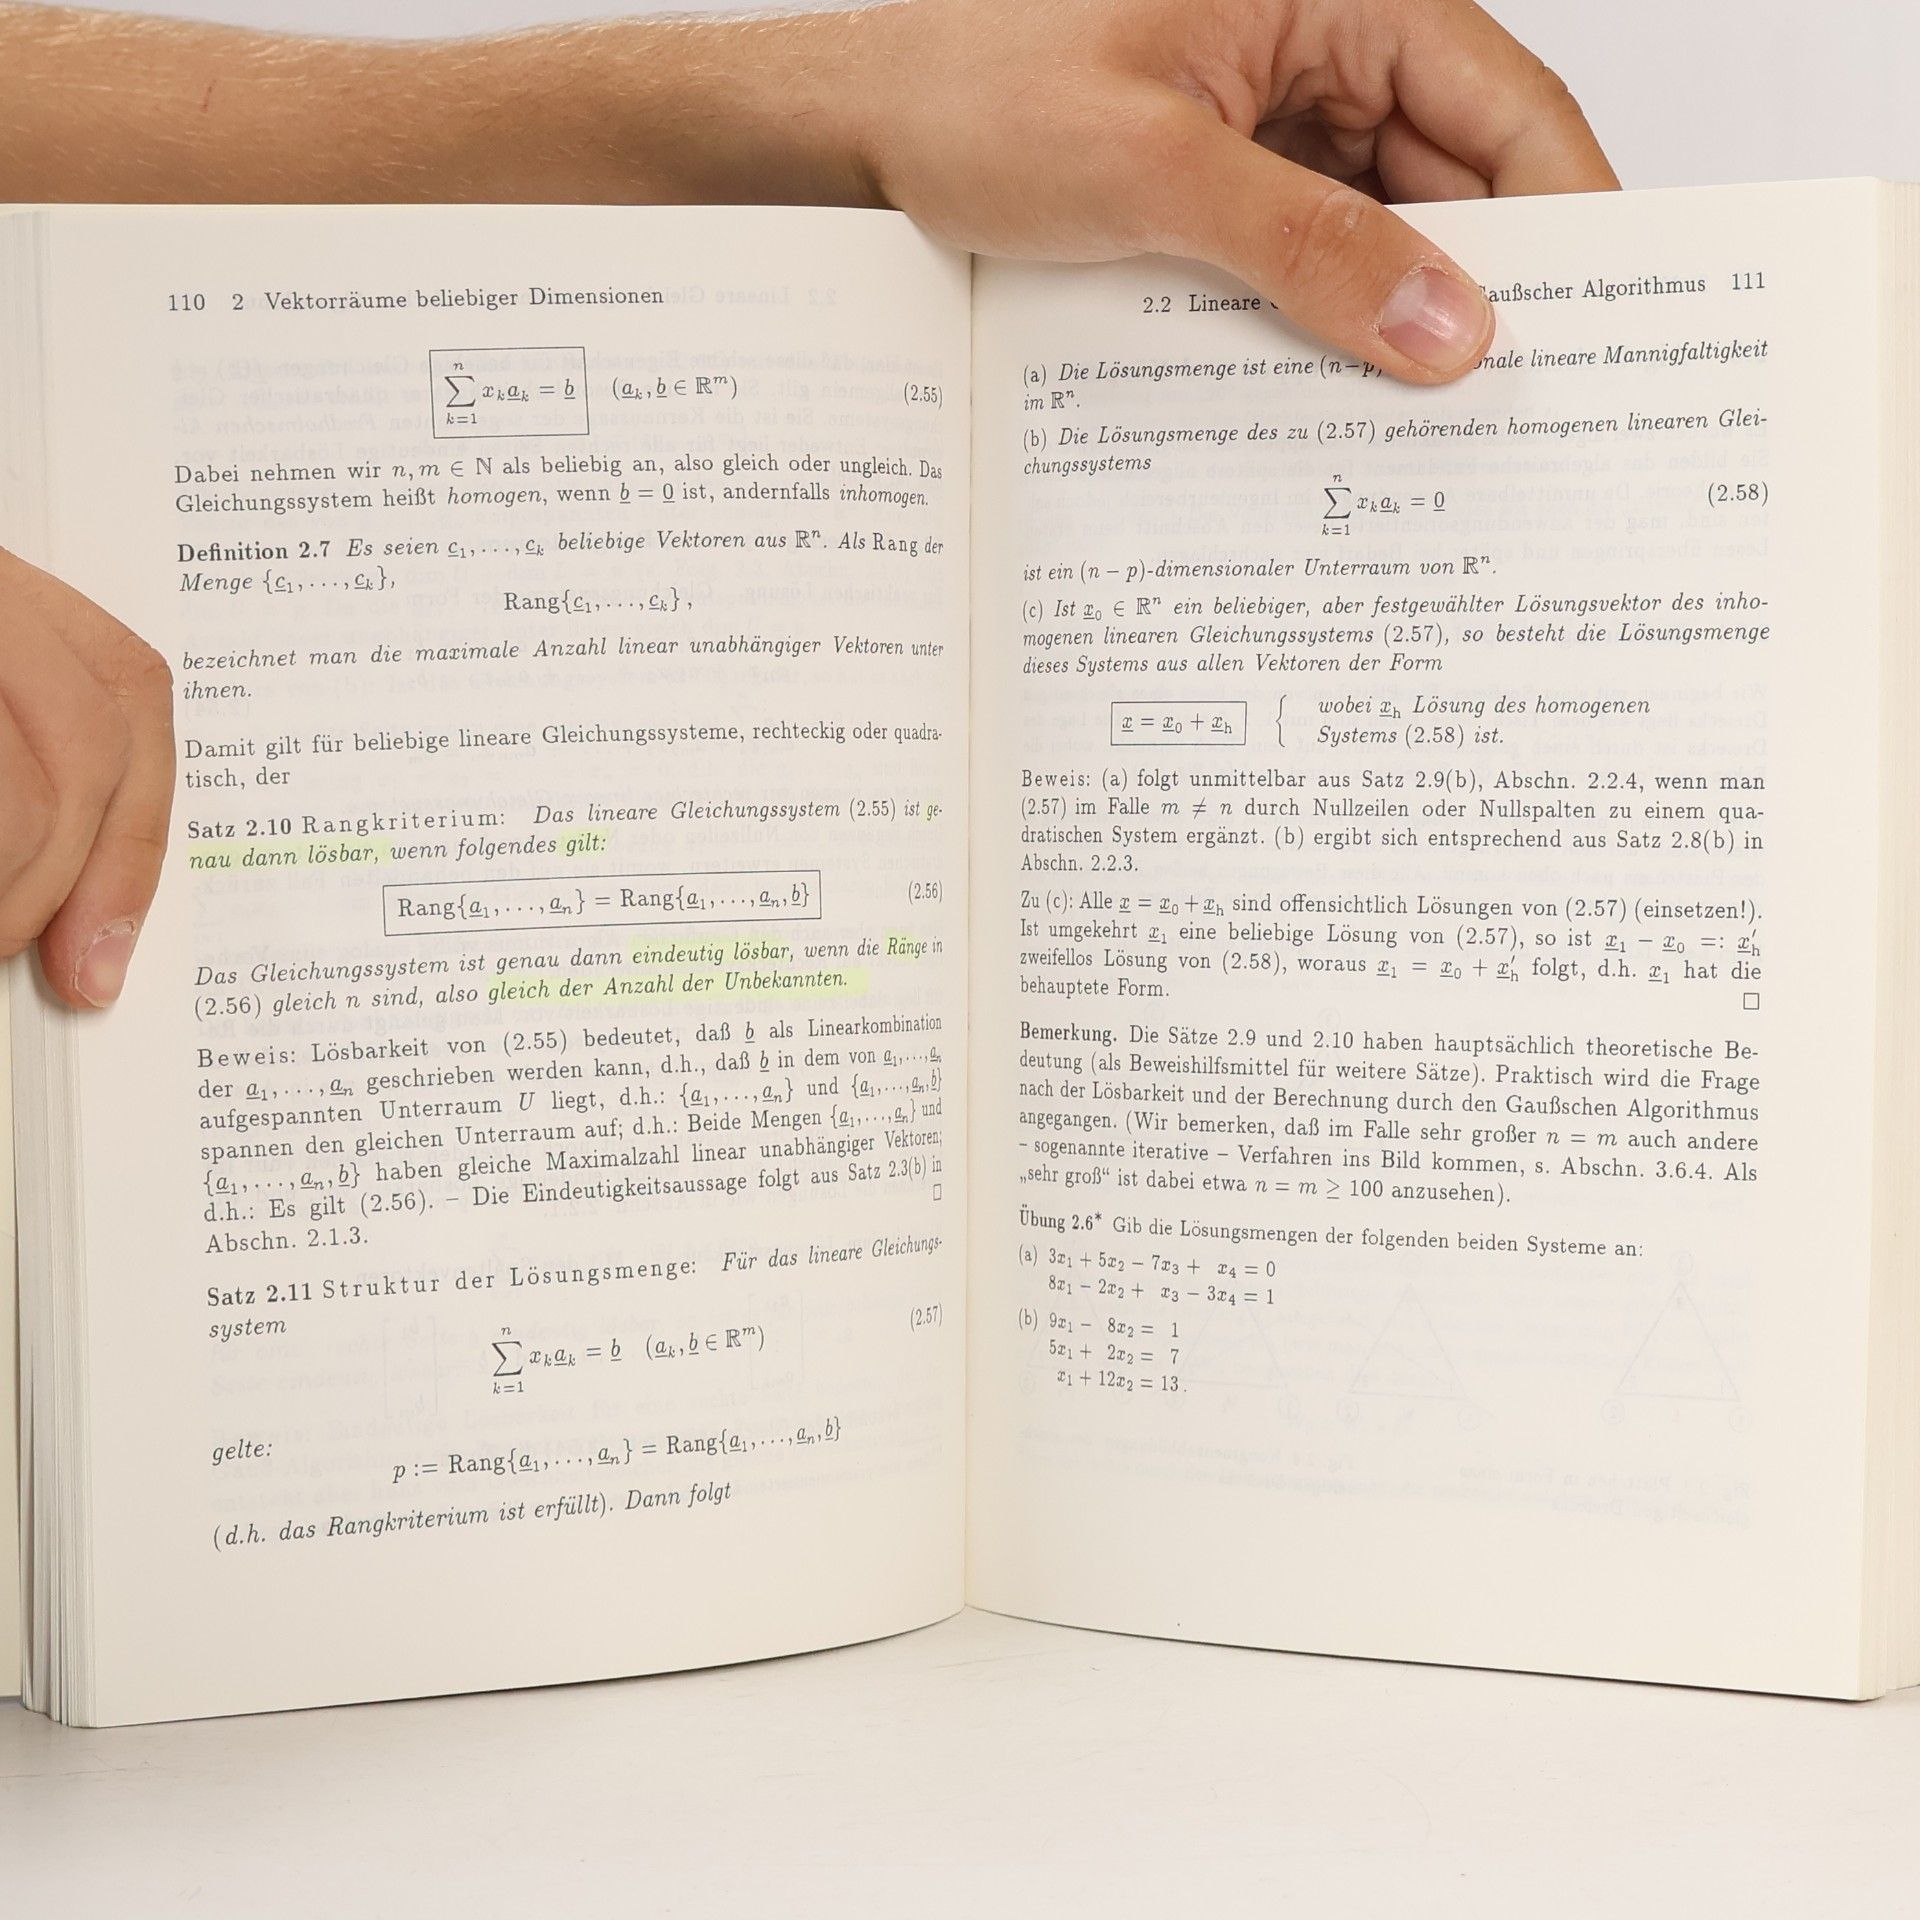 110 2 Vektorräume beliebiger Dimensionen
∑ₖ₌₁ⁿ xₖa̲ₖ = b̲ (a̲ₖ, b̲ ∈ ℝᵐ) (2.55)
Dabei nehmen wir n, m ∈ ℕ als beliebig an, also gleich oder ungleich. Das
Gleichungssystem heißt homogen, wenn b̲ = 0̲ ist, andernfalls inhomogen.
Definition 2.7 Es seien c̲₁, . . . , c̲ₖ beliebige Vektoren aus ℝⁿ. Als Rang der
Menge {c̲₁, . . . , c̲ₖ},
Rang{c̲₁, . . . , c̲ₖ} ,
bezeichnet man die maximale Anzahl linear unabhängiger Vektoren unter
ihnen.
Damit gilt für beliebige lineare Gleichungssysteme, rechteckig oder quadra-
tisch, der
Satz 2.10 Rangkriterium: Das lineare Gleichungssystem (2.55) ist ge-
nau dann lösbar, wenn folgendes gilt:
Rang{a̲₁, . . . , a̲ₙ} = Rang{a̲₁, . . . , a̲ₙ, b̲} (2.56)
Das Gleichungssystem ist genau dann eindeutig lösbar, wenn die Ränge in
(2.56) gleich n sind, also gleich der Anzahl der Unbekannten.
Beweis: Lösbarkeit von (2.55) bedeutet, daß b̲ als Linearkombination
der a̲₁, . . . , a̲ₙ geschrieben werden kann, d.h., daß b̲ in dem von a̲₁, . . . , a̲ₙ
aufgespannten Unterraum U liegt, d.h.: {a̲₁, . . . , a̲ₙ} und {a̲₁, . . . , a̲ₙ, b̲}
spannen den gleichen Unterraum auf; d.h.: Beide Mengen {a̲₁, . . . , a̲ₙ} und
{a̲₁, . . . , a̲ₙ, b̲} haben gleiche Maximalzahl linear unabhängiger Vektoren;
d.h.: Es gilt (2.56). – Die Eindeutigkeitsaussage folgt aus Satz 2.3(b) in
Abschn. 2.1.3. □
Satz 2.11 Struktur der Lösungsmenge: Für das lineare Gleichungs-
system
∑ₖ₌₁ⁿ xₖa̲ₖ = b̲ (a̲ₖ, b̲ ∈ ℝᵐ) (2.57)
gelte:
p := Rang{a̲₁, . . . , a̲ₙ} = Rang{a̲₁, . . . , a̲ₙ, b̲}
(d.h. das Rangkriterium ist erfüllt). Dann folgt
2.2 Lineare Gaußscher Algorithmus 111
(a) Die Lösungsmenge ist eine (n−p) lineare Mannigfaltigkeit
im ℝⁿ.
(b) Die Lösungsmenge des zu (2.57) gehörenden homogenen linearen Glei-
chungssystems
∑ₖ₌₁ⁿ xₖa̲ₖ = 0̲ (2.58)
ist ein (n − p)-dimensionaler Unterraum von ℝⁿ.
(c) Ist x̲₀ ∈ ℝⁿ ein beliebiger, aber festgewählter Lösungsvektor des inho-
mogenen linearen Gleichungssystems (2.57), so besteht die Lösungsmenge
dieses Systems aus allen Vektoren der Form
x̲ = x̲₀ + x̲ₕ { wobei x̲ₕ Lösung des homogenen
Systems (2.58) ist.
Beweis: (a) folgt unmittelbar aus Satz 2.9(b), Abschn. 2.2.4, wenn man
(2.57) im Falle m ≠ n durch Nullzeilen oder Nullspalten zu einem qua-
dratischen System ergänzt. (b) ergibt sich entsprechend aus Satz 2.8(b) in
Abschn. 2.2.3.
Zu (c): Alle x̲ = x̲₀ + x̲ₕ sind offensichtlich Lösungen von (2.57) (einsetzen!).
Ist umgekehrt x̲₁ eine beliebige Lösung von (2.57), so ist x̲₁ − x̲₀ =: x̲′ₕ
zweifellos Lösung von (2.58), woraus x̲₁ = x̲₀ + x̲′ₕ folgt, d.h. x̲₁ hat die
behauptete Form. □
Bemerkung. Die Sätze 2.9 und 2.10 haben hauptsächlich theoretische Be-
deutung (als Beweishilfsmittel für weitere Sätze). Praktisch wird die Frage
nach der Lösbarkeit und der Berechnung durch den Gaußschen Algorithmus
angegangen. (Wir bemerken, daß im Falle sehr großer n = m auch andere
– sogenannte iterative – Verfahren ins Bild kommen, s. Abschn. 3.6.4. Als
„sehr groß“ ist dabei etwa n = m ≥ 100 anzusehen).
Übung 2.6* Gib die Lösungsmengen der folgenden beiden Systeme an:
(a) 3x₁ + 5x₂ − 7x₃ + x₄ = 0
8x₁ − 2x₂ + x₃ − 3x₄ = 1
(b) 9x₁ − 8x₂ = 1
5x₁ + 2x₂ = 7
x₁ + 12x₂ = 13.